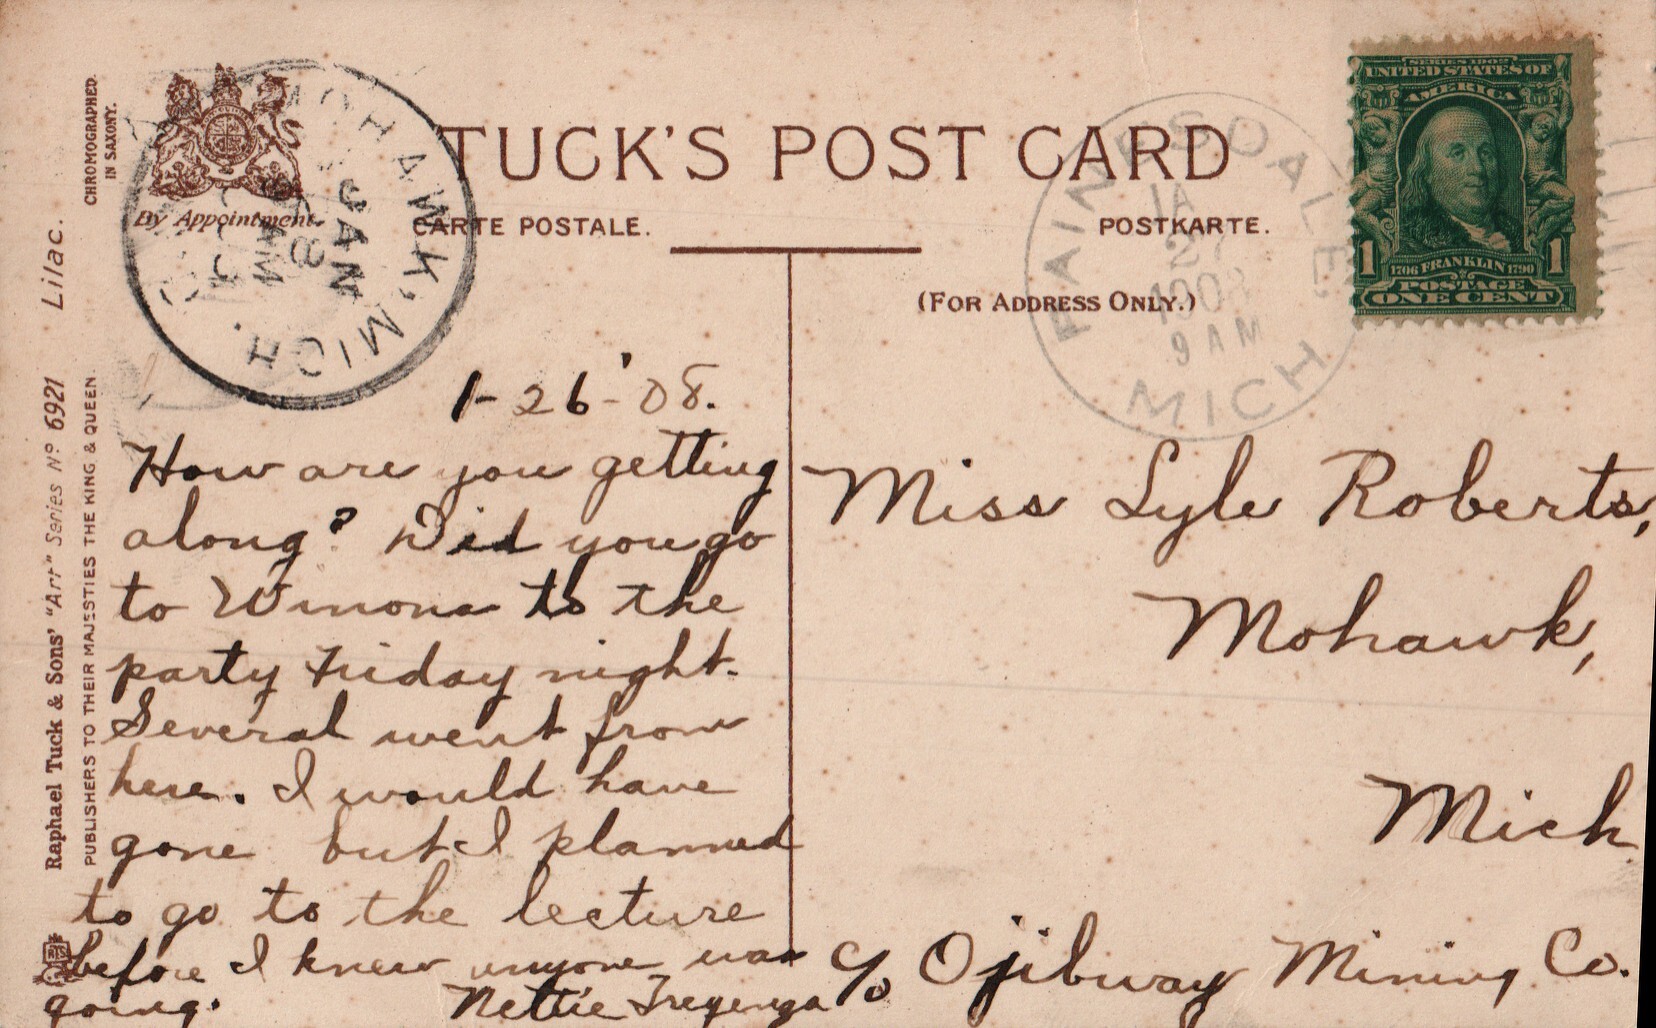 CHROMOGRAPHED
IN SAXONY.
By Appointment.
TUCK'S POST CARD
CARTE POSTALE.
POSTKARTE.
(FOR ADDRESS ONLY.)
MOHAWK, MICH.
JAN
AM
PAINESDALE
JA
27
1908
9 AM
MICH
SERIES 1902
UNITED STATES OF
AMERICA
1 1706 FRANKLIN 1790 1
POSTAGE
ONE CENT
Raphael Tuck & Sons' "Art" Series No 6921 Lilac.
PUBLISHERS TO THEIR MAJESTIES THE KING & QUEEN
1-26-'08.
How are you getting
along? Did you go
to Winona to the
party Friday night.
Several went from
here. I would have
gone but I planned
to go to the lecture
before I knew anyone was
going.
Nettie Tregenza
Miss Lyle Roberts,
Mohawk,
Mich
c/o Ojibway Mining Co.